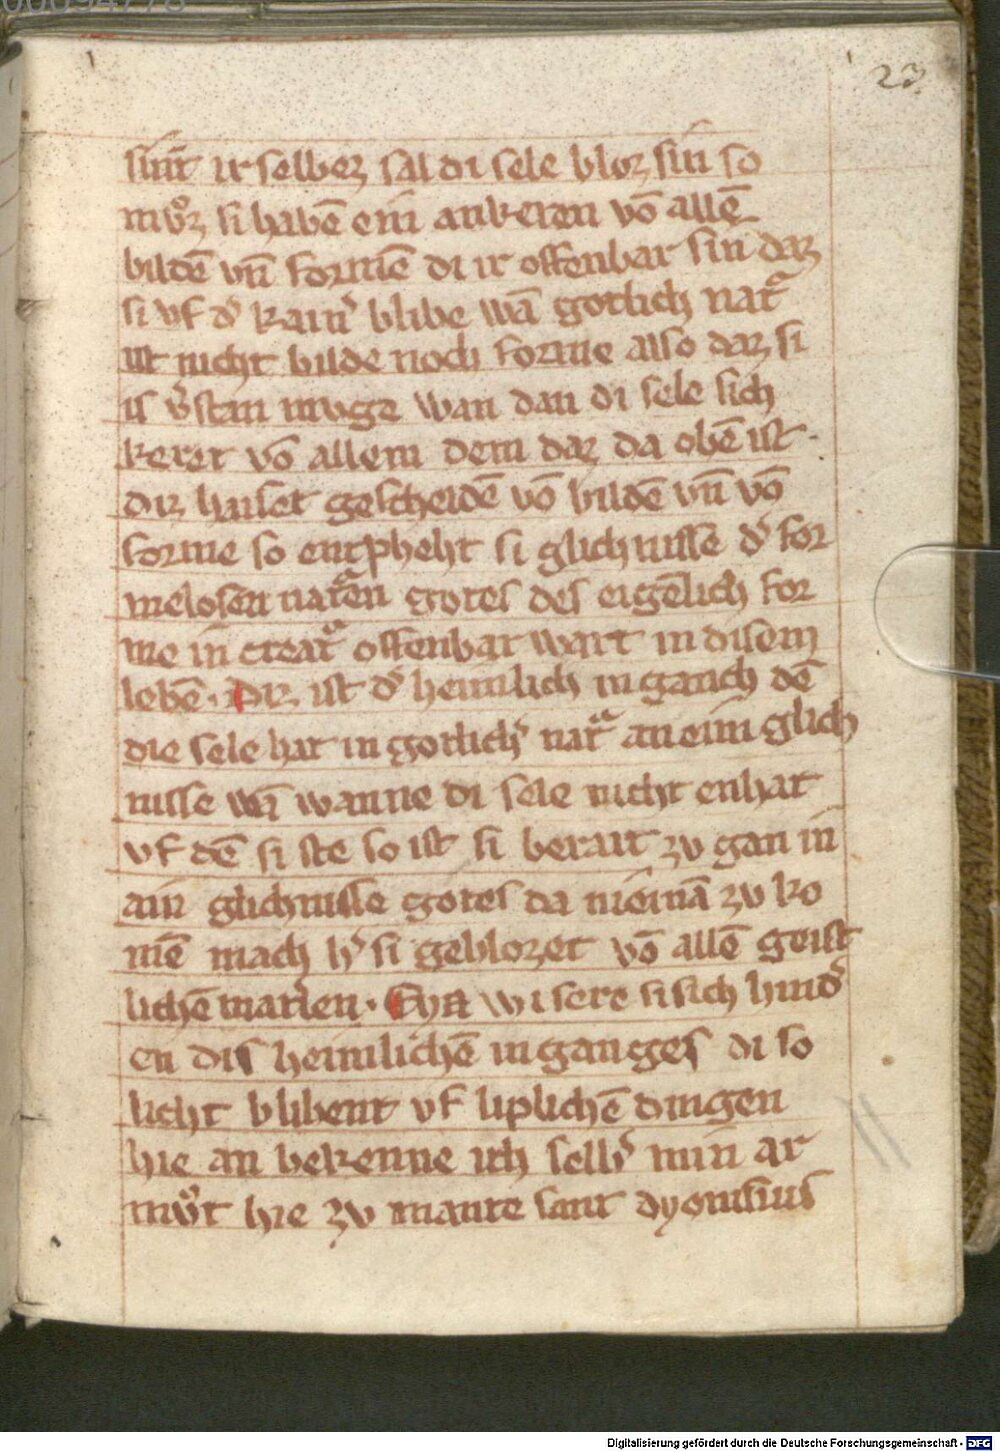 23
sint ir selbez sal di sele bloz sin so
mvͦz si habē ein ankeren vō allē
bildē vn̄ formē di ir offenbar sin daz
si vf dˢ kainˢ blibe wā gotlich natᵃ
ist nicht bilde noch forme also daz si
is vˢsten muge wan dan di sele sich
keret vō allem dem daz da obē ist
diz haiset gescheidē vō bildē vn̄ vō
forme so entpheht si glichnisse dˢ for
melosen natᵃen gotes des eigēlich for
me in creatᵃ offenbar wart in disem
lebē · Diz ist dˢ heimlich inganch dē
die sele hat in gotlichˢ natᵃ an eim glich
nisse wā wanne di sele nicht enhat
vf dē si ste so ist si berait zv gan in
ain glichnisse gotes da niemā zv ko
mē mach hˢ si geblozet vō allē geist
lichē matˢien · Eya wi sere si sich hindˢ
en dis heimlichē inganges di so
licht blibent vf liplichē dingen
hie an bekenne ich selbˢ min ar
mvͦt hie zv mante sant dyonisius
Digitalisierung gefördert durch die Deutsche Forschungsgemeinschaft - DFG